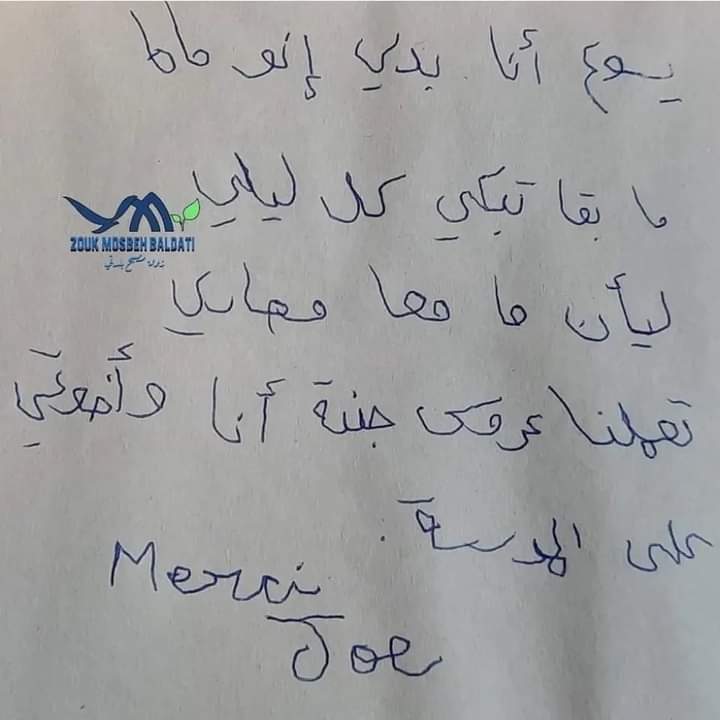 يسوع أنا بدي إنو ماما
ما بقا تبكي كل ليلي
ZOUK MOSBEH BALDATI
زوق مصبح بلدتي
ليأن ما معا مصاري
تعملنا عروس جبنة أنا وأخوتي
على المدرسة.
Merci
Joe